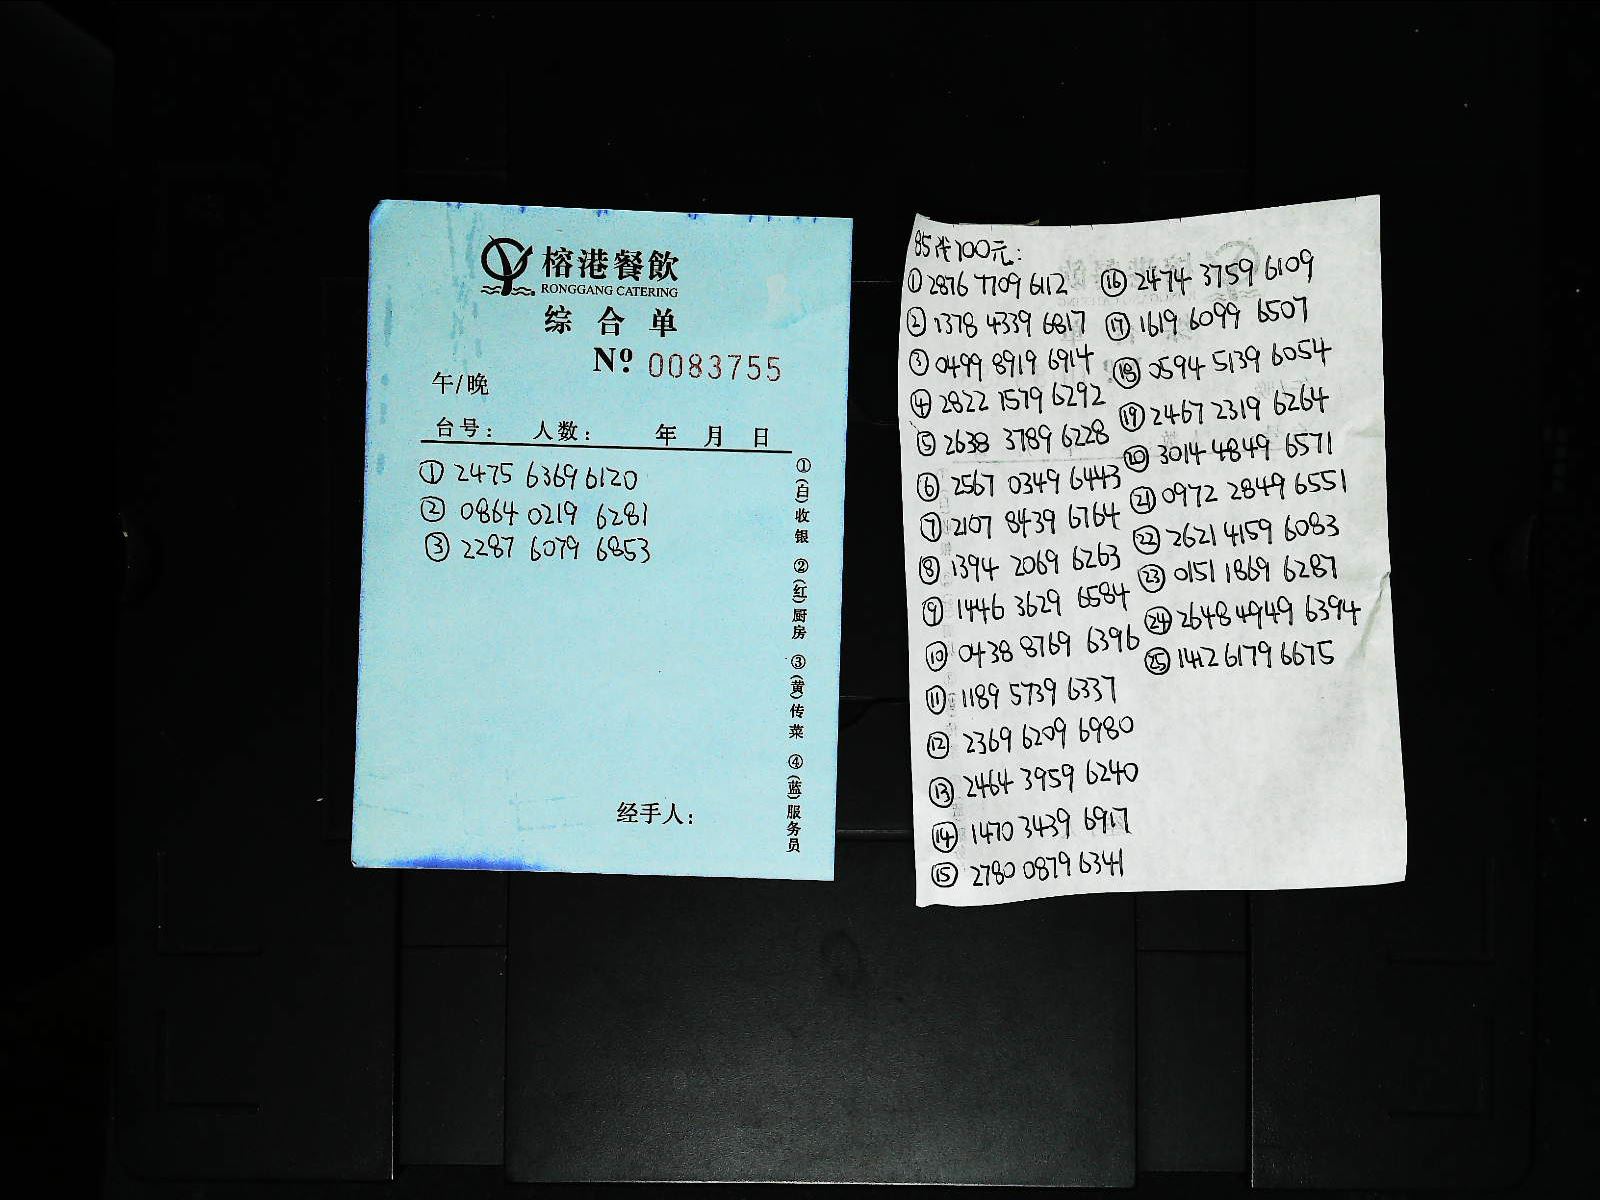 榕港餐飲
RONGGANG CATERING
综合单
Nº 0083755
午/晚
台号: 人数: 年 月 日
① 2475 6369 6120
② 0864 0219 6281
③ 2287 6079 6853
①(白)收银 ②(红)厨房 ③(黄)传菜 ④(蓝)服务员
经手人:
85代100元:
① 2876 7709 6112
② 1378 4339 6817
③ 0499 8919 6914
④ 2822 1579 6292
⑤ 2638 3789 6228
⑥ 2567 0349 6443
⑦ 2107 8439 6764
⑧ 1394 2069 6263
⑨ 1446 3629 6584
⑩ 0438 8769 6396
⑪ 1189 5739 6337
⑫ 2369 6209 6980
⑬ 2464 3959 6240
⑭ 1470 3439 6917
⑮ 2780 0879 6341
⑯ 2474 3759 6109
⑰ 1619 6099 6507
⑱ 0594 5139 6054
⑲ 2467 2319 6264
⑳ 3014 4849 6571
㉑ 0972 2849 6551
㉒ 2621 4159 6083
㉓ 0151 1869 6287
㉔ 2648 4949 6394
㉕ 1412 6179 6675